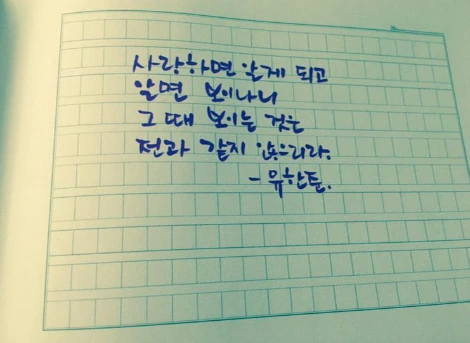 사랑하면 알게 되고
알면 보이나니
그 때 보이는 것은
전과 같지 않으리라.
- 유한준.